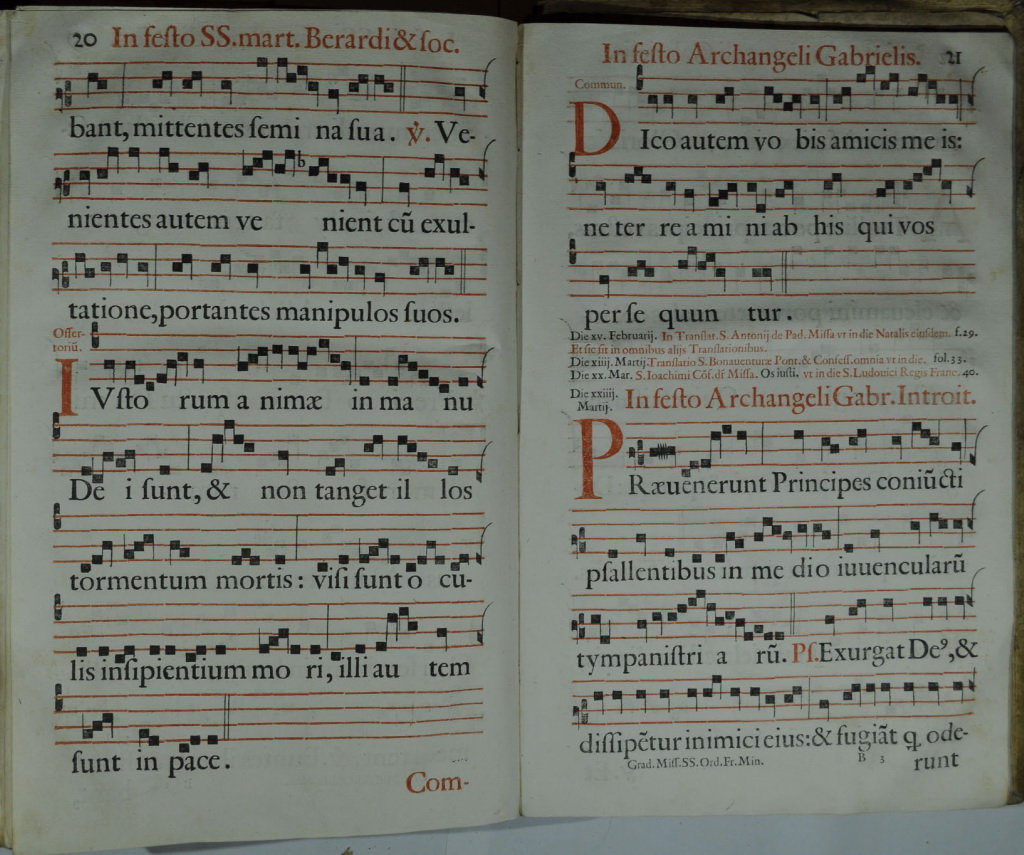 20 In festo SS. mart. Berardi & soc.
bant, mittentes semi na sua. ℣. Ve-
nientes autem ve nient cũ exul-
tatione, portantes manipulos suos.
Offer-
toriũ.
IVsto rum a nimæ in ma nu
De i sunt, & non tanget il los
tormentum mortis: visi sunt o cu-
lis insipientium mo ri, illi au tem
sunt in pace.
Com-
In festo Archangeli Gabrielis. 21
Commun.
DIco autem vo bis amicis me is:
ne ter re a mi ni ab his qui vos
per se quun tur.
Die xv. Februarij. In Translat. S. Antonij de Pad. Missa vt in die Natalis eiusdem. f. 29.
Et sic fit in omnibus alijs Translationibus.
Die xiiij. Martij. Translatio S. Bonauenturæ Pont. & Confess. omnia vt in die. fol. 33.
Die xx. Mar. S. Ioachimi Cõf. dr̃ Missa. Os iusti, vt in die S. Ludouici Regis Franc. 40.
Die xxiiij.
Martij. In festo Archangeli Gabr. Introit.
PRæuenerunt Principes coniũcti
psallentibus in me dio iuuencularũ
tympanistri a rũ. Ps. Exurgat De⁹, &
dissipẽtur inimici eius: & fugiãt q ode-
Grad. Miss. SS. Ord. Fr. Min. B 3 runt